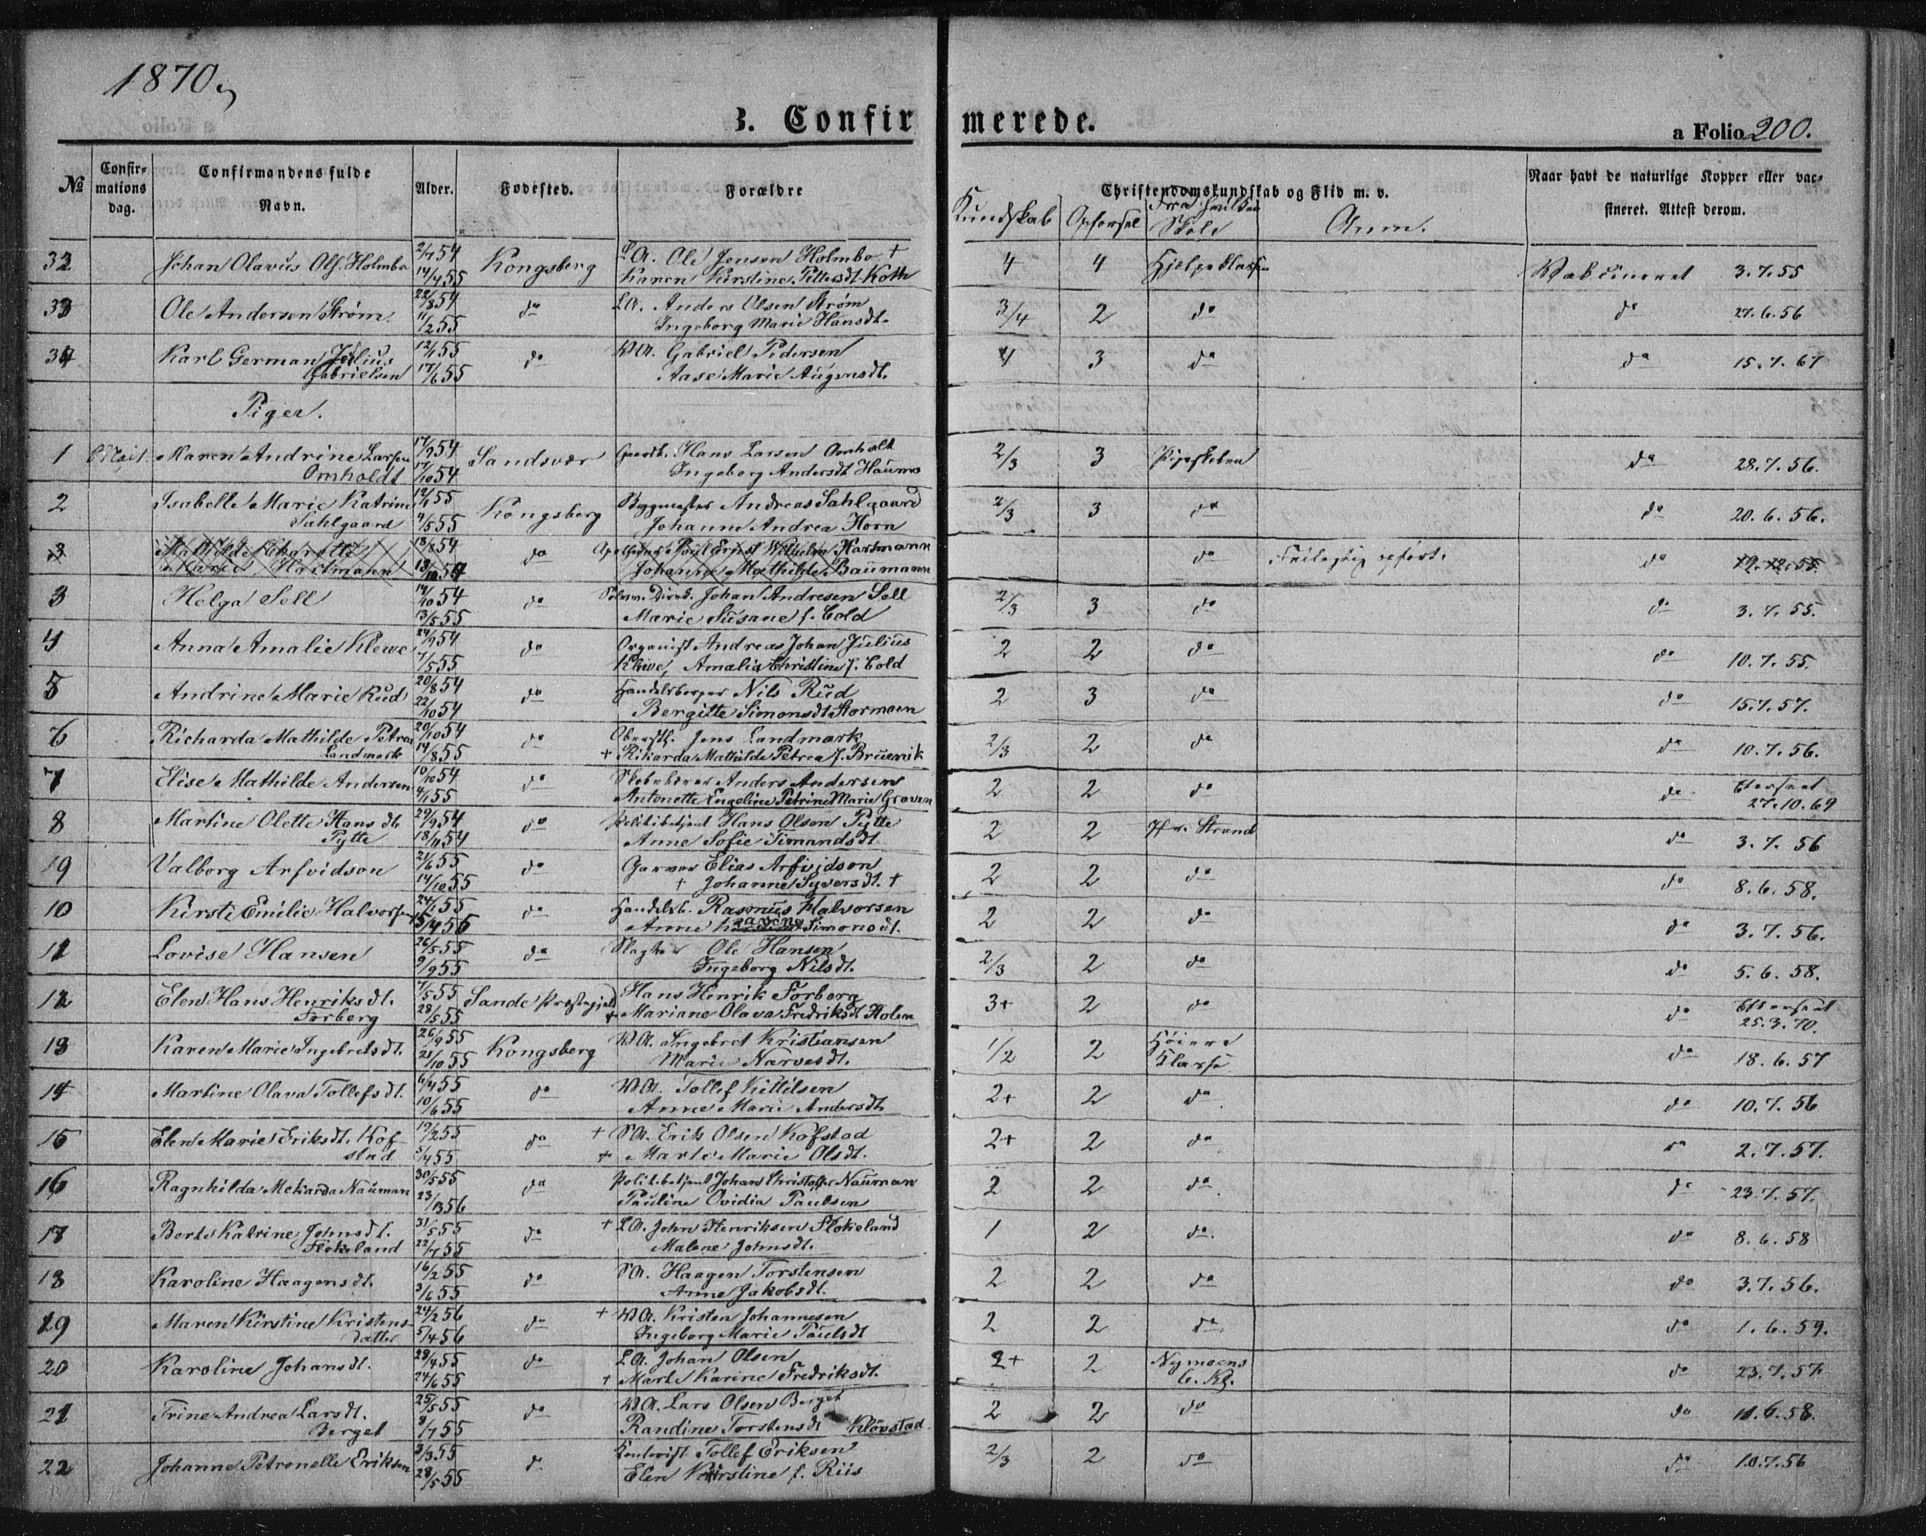 1870.
B. Confirmerede.
a Folio 200.
№ Confirmations dag. Confirmandens fulde Navn. Alder. Fødested. Forældre Christendomskundskab og Flid m. v. Naar havt de naturlige Kopper eller vacsineret. Attest derom.
Kundskab Opførsel Skole Anm.
32 Johan Olavus Ols. Holmbo 2/7 54 14/4 55 Kongsberg LA. Ole Jensen Holmbo + 4 4 Hjelpeklassen Vakcineret 3.7.55
Karen Kirstine Pettersdt Koth
33 Ole Andersen Strøm 22/8 54 11/2 55 do LA. Anders Olsen Strøm 3/4 2 do do 27.6.56
Ingeborg Marie Hansdt.
34 Karl German Julius 12/1 55 17/6 55 do VA. Gabriel Pedersen 4 3 do do 15.7.67
Gabrielsen Aase Marie Augensdt.
Piger.
1 Maren Andrine Larsen 17/7 54 17/10 54 Sandsvær Gaardb. Hans Larsen Omholt 2/3 3 Pigeskolen do 28.7.56.
Omholdt Ingeborg Andersdt Haumo
2 Isabelle Marie Katrine 12/1 55 9/5 55 Kongsberg Bygmester Andreas Sahlgaard 2/3 3 do do 20.6.56.
Sahlgaard Johanne Andrea Horn
3 Mathilde Charlotte 18/8 54 do Apotheker Emil Ernst Wilhelm Hartmann do Feilagtig opført. do 19.12.55
Marie Hartmann Johanne Mathilde Baumann
3 Helga Sell 14/10 54 13/5 55 do Johan Andresen Sell 2/3 3 do do 3.7.55.
Marie Susane f. Cold
4 Anna Amalie Klewe 24/9 54 7/5 55 do Organist Andreas Johan Julius 2 2 do do 10.7.55.
Klewe, Amalia Christine f. Cold
5 Andrine Marie Rud 20/8 54 22/10 54 do Handelsborger Nils Rud 2 3 do do 15.7.57.
Bergitte Simonsdt Stormoen
6 Richarda Mathilde Petrea 20/10 54 14/8 55 do Oberstl. Jens Landmark 2/3 2 do do 10.7.56.
Landmark + Rikarda Mathilde Petrea f. Bruenik
7 Elise Mathilde Andersen 10/10 54 4/1 55 do Anders Andersen 2 2 do do Eterseet 27.10.69
Antonette Engeline Petrine Marie Graven
8 Martine Olette Hansdt 29/9 54 18/11 54 do Politibetjent Hans Olsen Pytte 2 2 Hr. Strand do 3.7.56
Pytte Anne Sofie Timandsdt.
19 Valborg Arfvidson 21/6 55 14/10 55 do Garver Elias Arfvidson 2 2 do do 8.6.58.
+ Johanne Syversdt. +
10 Kirsti Emilie Halvorsen 24/1 55 15/4 56 do Handelsb. Rasmus Halvorsen 2 2 do do 3.7.56.
Anne Simonsdt.
11 Lovise Hansen 26/5 55 9/9 55 do Slagter Ole Hansen 2/3 2 do do 5.6.58.
Ingeborg Nilsdt.
12 Elen Hans Henriksdt. 7/5 55 28/5 55 Sande Præstegjeld Hans Henrik Forberg 3+ 2 do do Eterseet 25.3.70.
Forberg + Mariane Olava Fredriksdt Holen
13 Karen Marie Ingebretsdt. 26/9 55 21/10 55 Kongsberg VA. Ingebret Kristiansen 1/2 2 Høiere Klasse do 18.6.57
Marie Narvesdt.
14 Martine Olava Tollefsdt. 6/4 55 10/6 55 do VA. Tollef Kittilsen 2+ 2 do do 10.7.56
Anne Marie Andersdt.
15 Elen Marie Eriksdt. Kof 19/2 55 3/4 55 do + SA. Erik Olsen Kofstad 2+ 2 do 2.7.57.
stad + Marte Marie Olsdt.
16 Ragnhilda Mekarda Nauman 30/5 55 do Politibetjent Johan Christofer Nauman 2 2 do do 23.7.57.
Pauline Ovidia Paulsen
17 Berte Katrine Johnsdt. 31/5 55 22/7 55 do + LA. John Henriksen Flokeland 1 2 do. do 8.6.58
Flokeland Malene Johnsdt.
18 Karoline Haagensdt. 16/2 55 3/6 55 do SA. Haagen Torstensen 2 2 do do 3.7.56.
Anne Jakobsdt.
19 Maren Kirstine Kristens- 24/2 56 5/4 56 do + VA. Kristen Johannesen 2 2 do do 1.6.59.
datter Ingeborg Marie Paulsdt
20 Karoline Johansdt. 28/4 55 24/6 55 do LA. Johan Olsen 2+ 2 Nymoens do 23.7.57.
+ Mart. Karine Fredriksdt.
21 Trine Andrea Larsdt. 25/5 55 8/7 55 do VA. Lars Olsen Berget 2 2 do do 11.6.58.
Berget Randine Torstensdt Kløvstad.
22 Johanne Petronelle Eriksen 3/3 55 28/5 55 d. Tollef Eriksen 2/3 2 do do 10.7.56
Elen Kirstine f. Riis